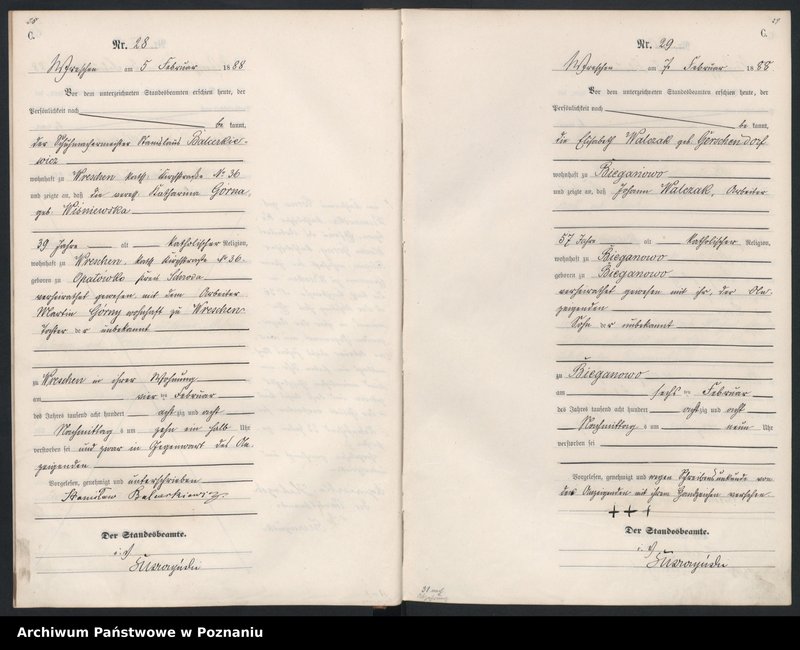 C.
Nr. 28
Wreschen am 5 Februar 1888
Vor dem unterzeichneten Standesbeamten erschien heute, der
Persönlichkeit nach
be kannt,
der Schuhmachermeister Stanislaus
wohnhaft zu Wreschen kath. Kirchstraße No 36
und zeigte an, daß die vereh. Katharina Gorna,
geb. Wiśniewska
39 Jahre alt katholischer Religion,
wohnhaft zu Wreschen, kath. Kirchstraße No 36
geboren zu Opatowko
verheirathet gewesen mit dem Arbeiter
Martin Gorny wohnhaft zu Wreschen
Tochter der unbekannt
zu Wreschen in ihrer Wohnung
am vier ten Februar
des Jahres tausend acht hundert acht zig und acht
Nachmittag s um zehn ein halb Uhr
verstorben sei und zwar in Gegenwart des An-
zeigenden
Vorgelesen, genehmigt und unterschrieben
Der Standesbeamte.
29
C.
Nr. 29
Wreschen am 7 Februar 1888
Vor dem unterzeichneten Standesbeamten erschien heute, der
Persönlichkeit nach
be kannt,
die Elisabeth Walczak geb. Görschendorf
wohnhaft zu Bieganowo
und zeigte an, daß Johann Walczak, Arbeiter
57 Jahre alt katholischer Religion,
wohnhaft zu Bieganowo
geboren zu Bieganowo
verheirathet gewesen mit ihr, der An-
zeigenden
Sohn der unbekannt
zu Bieganowo
am sechs ten Februar
des Jahres tausend acht hundert acht zig und acht
Nachmittag s um neun Uhr
verstorben sei
Vorgelesen, genehmigt und wegen Schreibensunkunde von
der Anzeigenden mit ihrem Handzeichen versehen
+ + +
Der Standesbeamte.
Archiwum Państwowe w Poznaniu